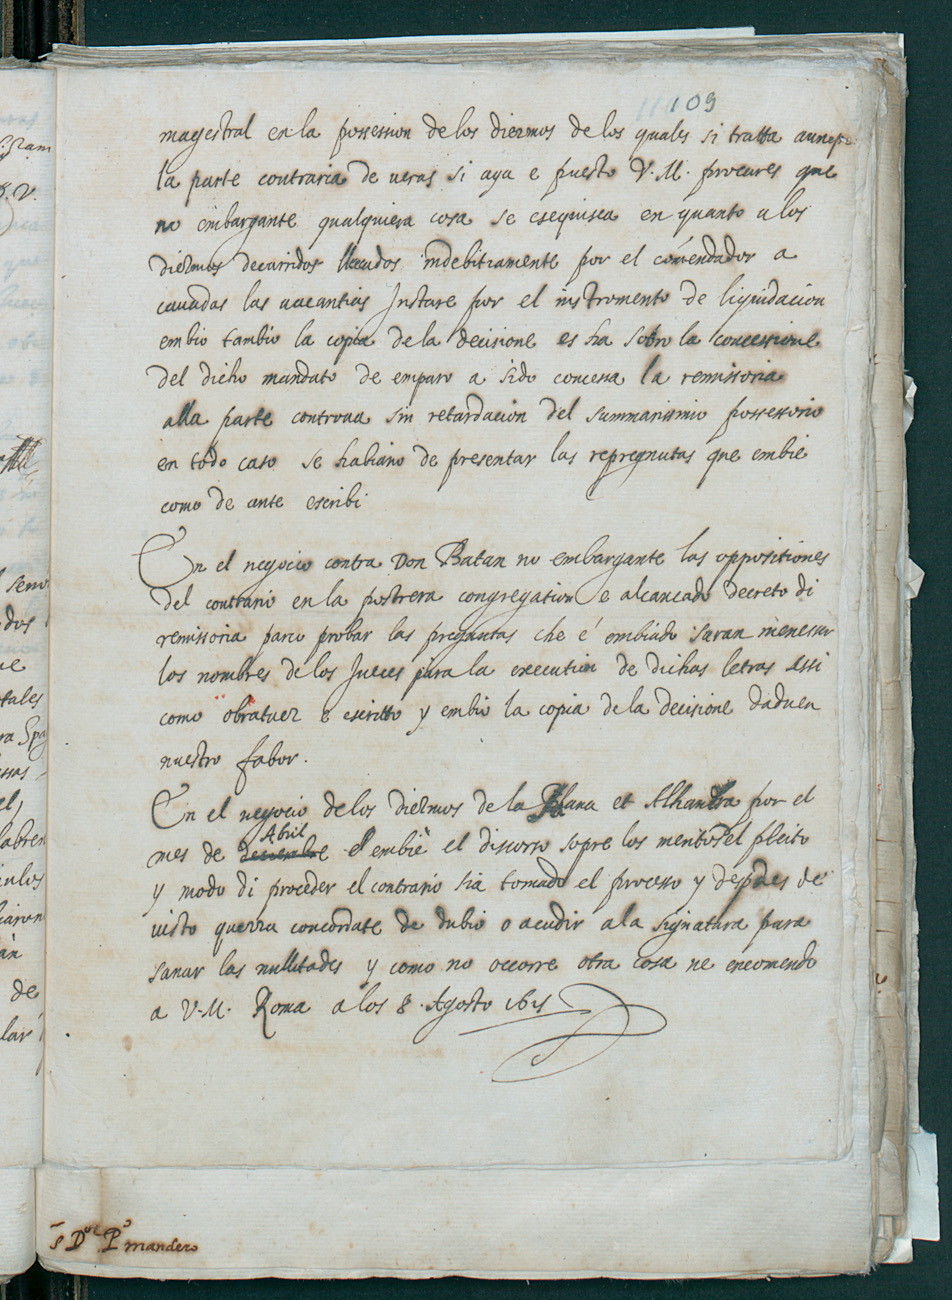 109
magestral en la possession de los diezmos de los quales si tratta
la parte contraria de ueras si aya e puesto V.M. procures que
no embargante qualquiera cosa se esequisca en quanto a los
diezmos decurridos lleuados indebitiamente por el comendador a
las uacantias Instare por el instromento de liquidacion
embio tambio la copia de la decisione es ha sobro la concessione
del dicho mandato de emparo a sido concessa la remissoria
alla parte sin retardacion del summarissimo possessorio
en todo caso se habiano de presentar las repregnutas que embie
como de ante escribi
En el negocio contra Don Batan no embargante las oppositiones
del contrario en la postrera congregation e alcancado decreto di
remissoria para probar las preguntas che e embiado saran menester
los nombres de los Jueces para la execution de dichas letras assi
como e escritto y embio la copia de la decisione dadu en
nuestro fabor.
En el negocio de los diezmos de la Plana et Alhandra por el
Abril
mes de deciembre e embie el discorso sopre los meritos del pleito
y modo di proceder el contrario sia tomado el processo y despues de
uisto querra concordate de dubio o acudir a la signatura para
sanar las nullitades y como no occorre otra cosa ne encomendo
a V.M. Roma a los 8. Agosto 1615
mandero